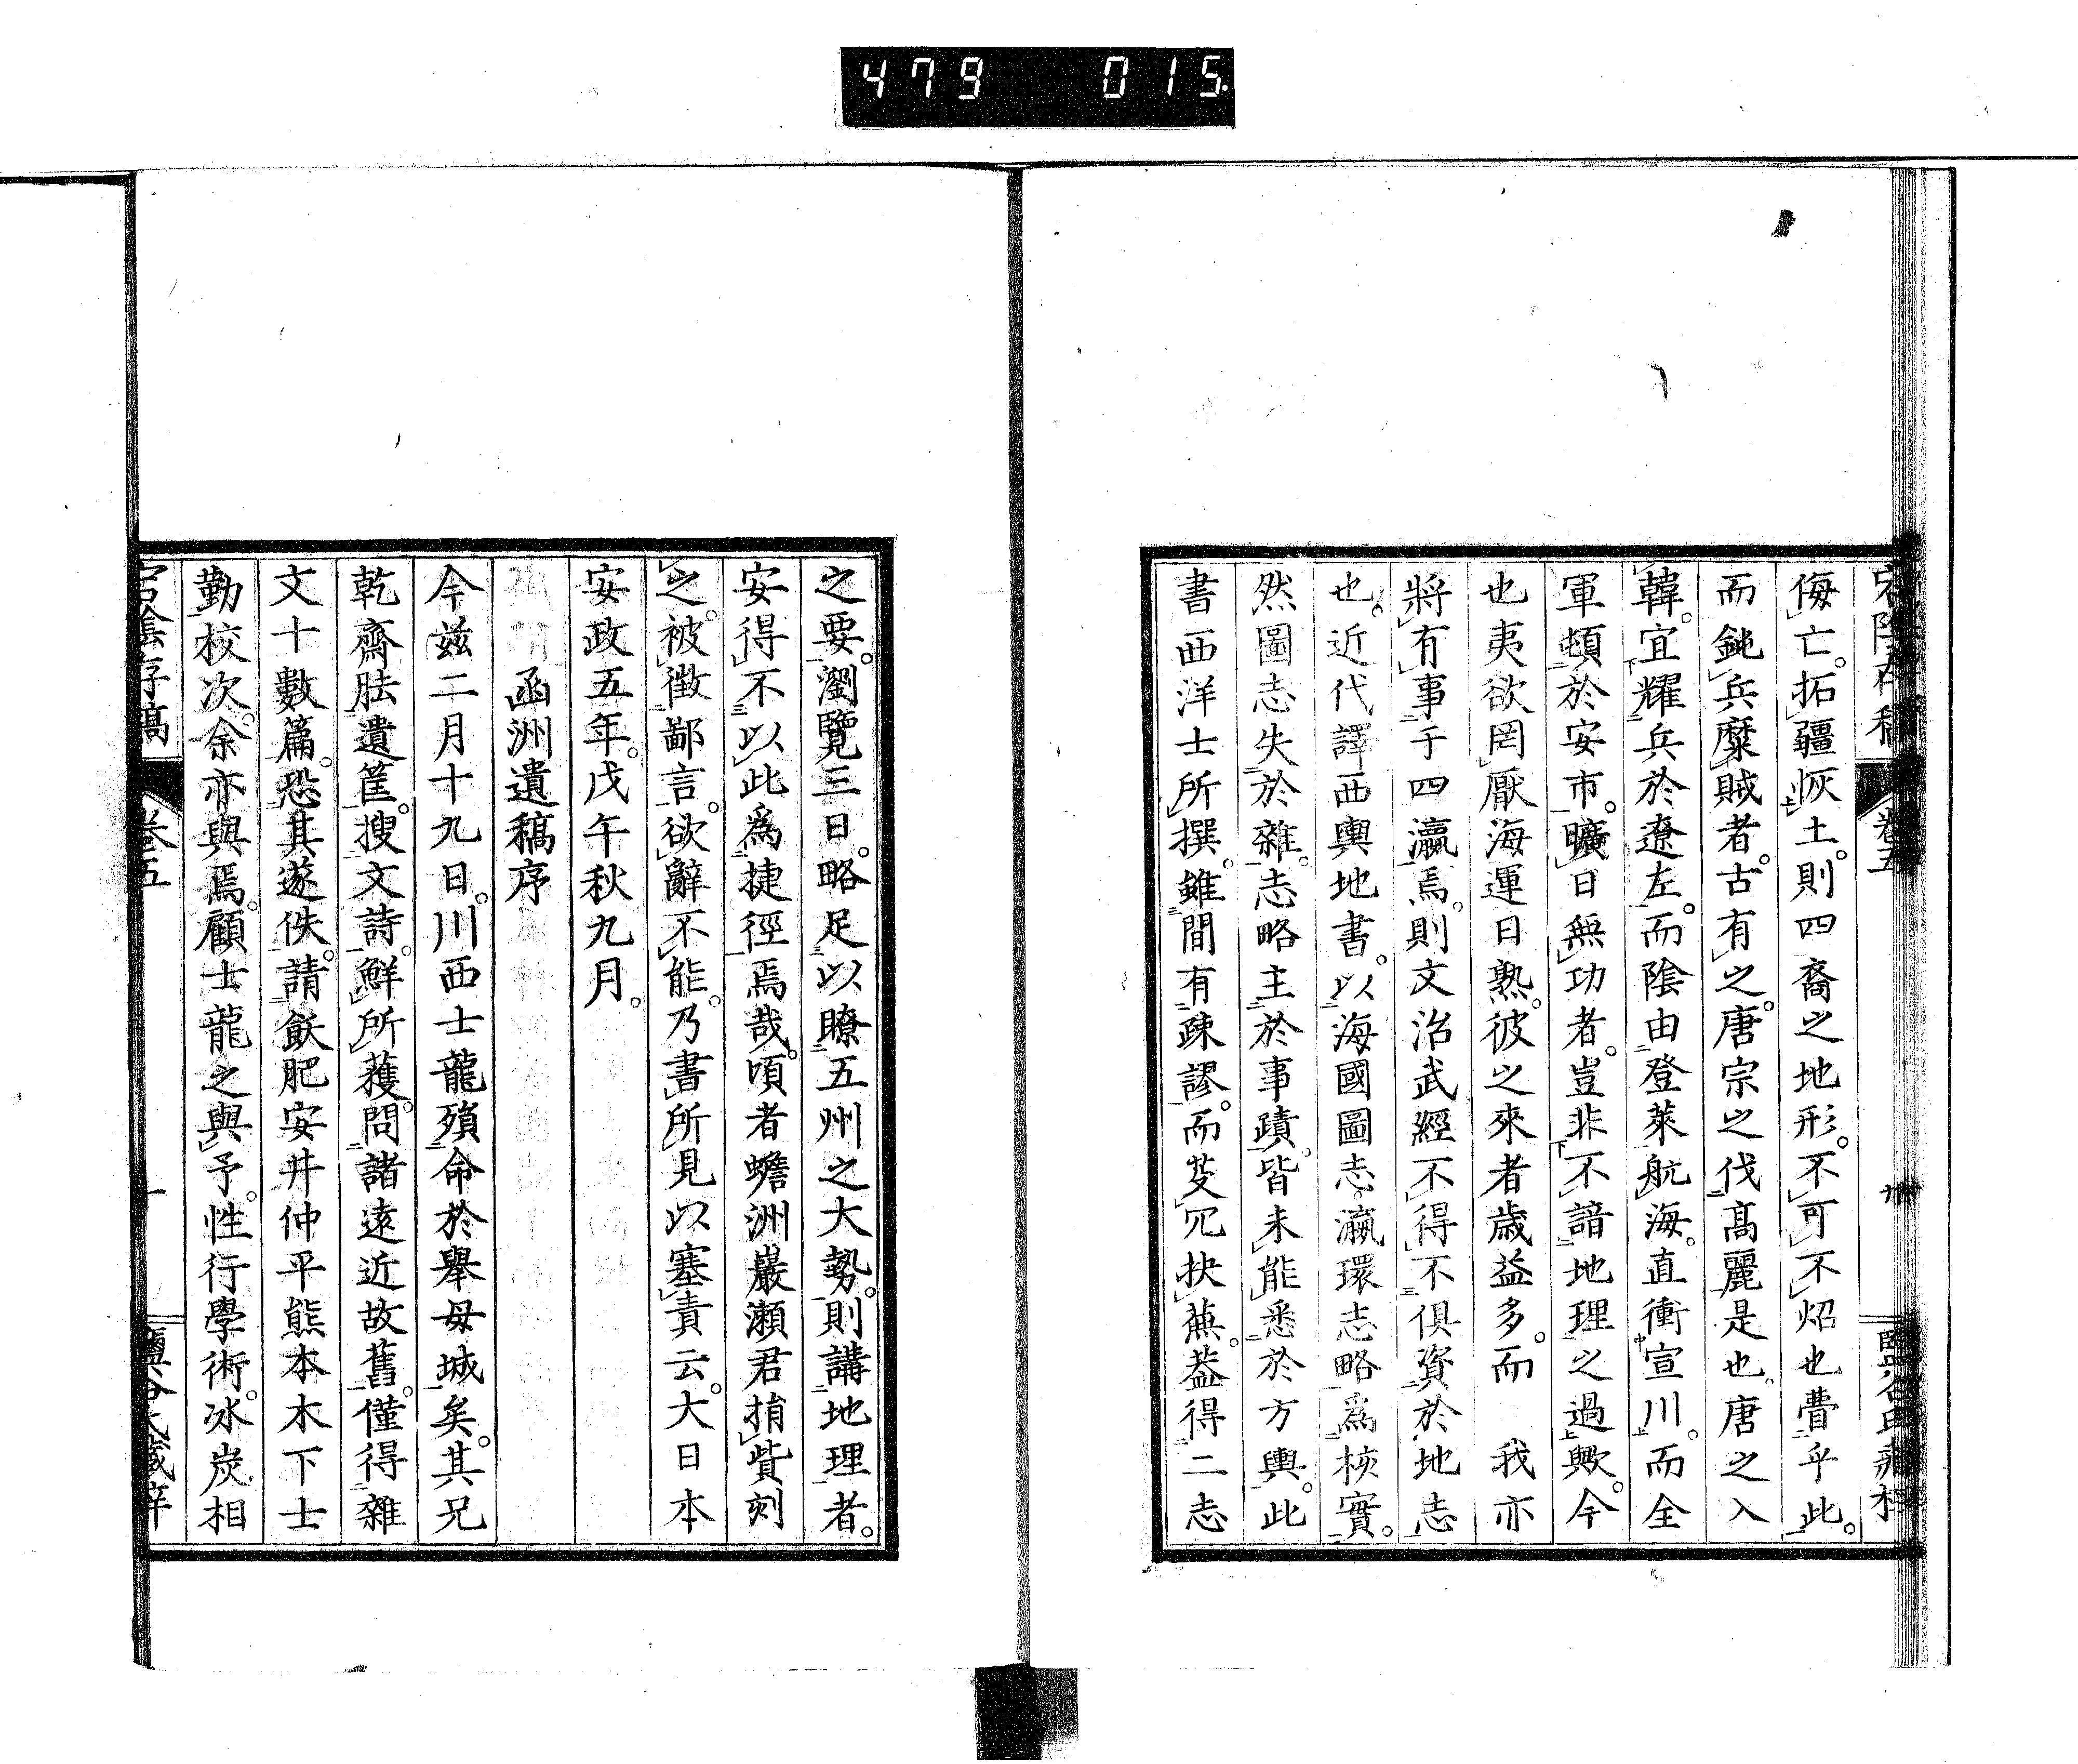 479 015
侮亡。拓疆恢土。則四裔之地形。不可不炤也費乎此。
而鈍兵糜賊者。古有之。唐宗之伐高麗是也。唐之入
韓。宜耀兵於遼左。而陰由登萊航海。直衝宣川。而全
軍頓於安市。曠日無功者。豈非不諳地理之過歟。今
也夷欲罔厭海運日熟。彼之來者歲益多。而　我亦
將有事于四瀛焉。則文治武經不得不俱資於地志
也。近代譯西輿地書。以海國圖志。瀛環志略爲核實。
然圖志失於雜。志略主於事蹟。皆未能悉於方輿。此
書西洋士所撰。雖間有疎謬。而芟冗抉蕪。葢得二志
之要。瀏覽三日。略足以瞭五州之大勢。則講地理者。
安得不以此爲捷徑焉哉。頃者蟾洲巖瀨君捐貲刻
之。被徵鄙言。欲辭不能。乃書所見以塞責云。大日本
安政五年。戊午秋九月。
函洲遺稿序
今玆二月十九日。川西士龍殞命於舉母城矣。其兄
乾齋胠遺筐。搜文詩。鮮所獲。問諸遠近故舊。僅得雜
文十數篇。恐其遂佚。請飫肥安井仲平熊本木下士
勤校次。余亦與焉。顧士龍之與予。性行學術。冰炭相
宕陰存稿　卷五